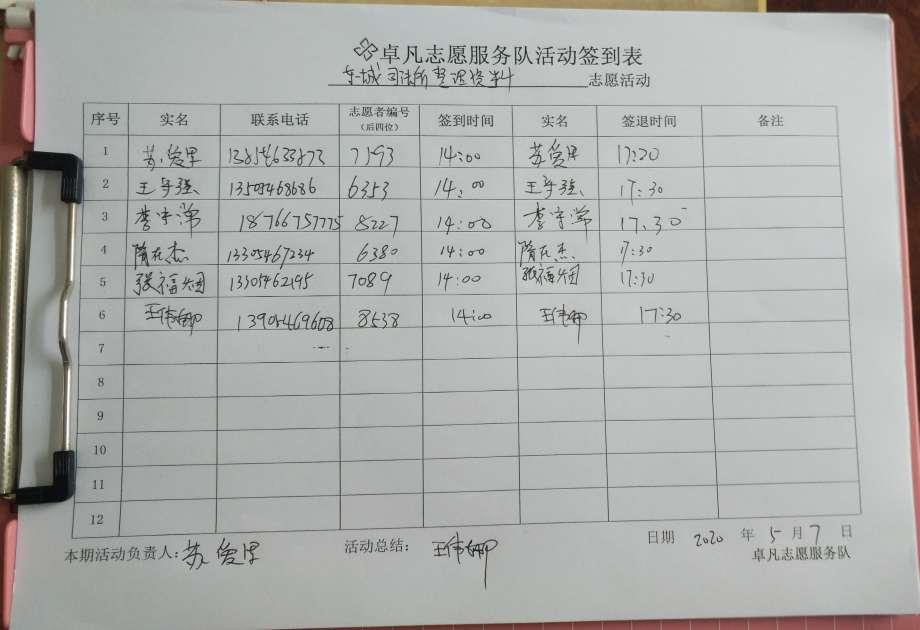 卓凡志愿服务队活动签到表
东城司法所整理资料 志愿活动
序号 实名 联系电话 志愿者编号（后四位） 签到时间 实名 签退时间 备注
1 苏爱 7193 14:00 苏爱 17:20
2 王守强 13509468686 6353 14:00 王守强 17:30
3 李宇常 18766757775 8227 14:00 李宇常 17.30
4 隋在杰 13305467234 6380 14:00 隋在杰 17:30
5 张福 13305462195 7089 14:00 张福 17:30
6 王伟娜 13905469608 8538 14:00 王伟娜 17:30
7
8
9
10
11
12
本期活动负责人：苏爱 活动总结： 王伟娜 日期 2020 年 5 月 7 日
卓凡志愿服务队